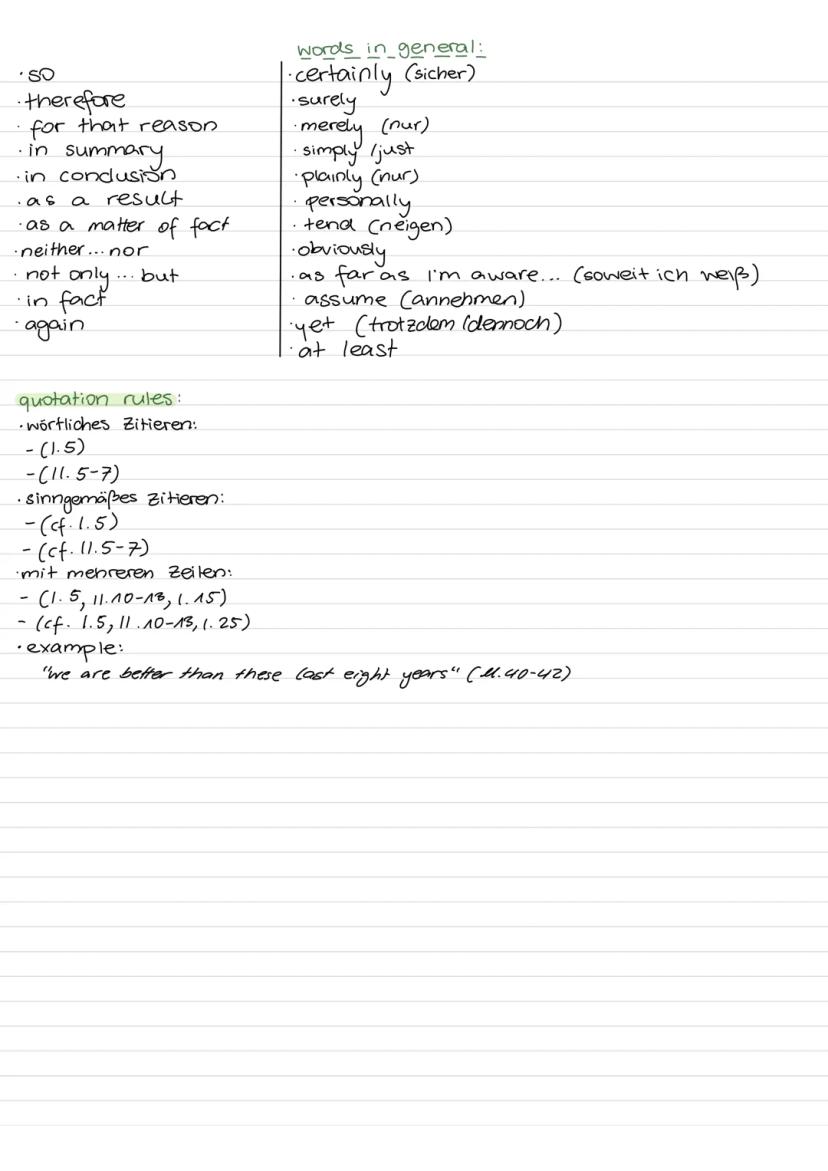 words in general:
· so
· therefore
· for that reason
· in summary
· in conclusion
· as a result
· as a matter of fact
· neither... nor
· not only ... but
· in fact
· again
· certainly (sicher)
· surely
· merely (nur)
· simply /just
· plainly (nur)
· personally
· tend (neigen)
· obviously
· as far as I'm aware... (soweit ich weiß)
· assume (annehmen)
· yet (trotzdem /dennoch)
· at least
quotation rules:
· wörtliches Zitieren:
- (l.5)
- (ll. 5-7)
· sinngemäßes Zitieren:
- (cf. l.5)
- (cf. ll.5-7)
· mit mehreren Zeilen:
- (l. 5, ll.10-13, l.15)
- (cf. l.5, ll.10-13, l.25)
· example:
"We are better than these last eight years" (ll.40-42)